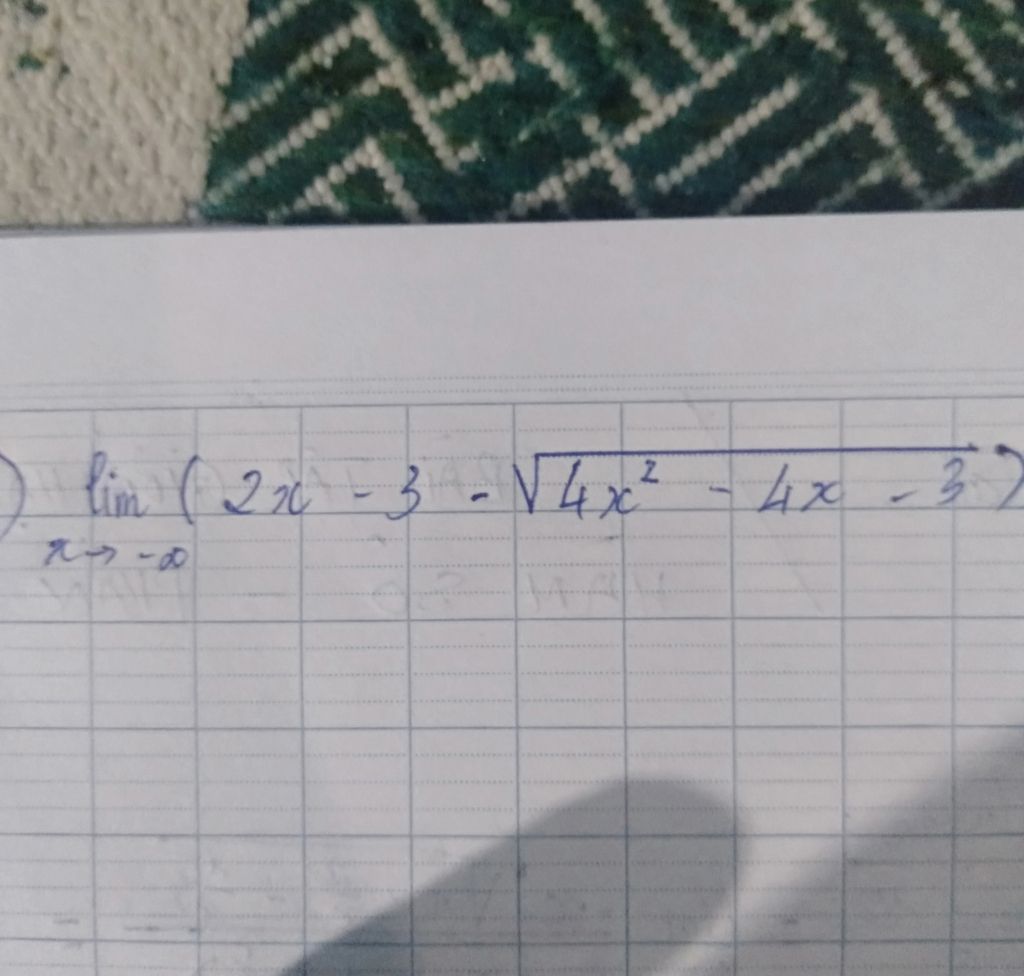 ) lim ( 2x - 3 - √4x² - 4x - 3 )
x → -∞